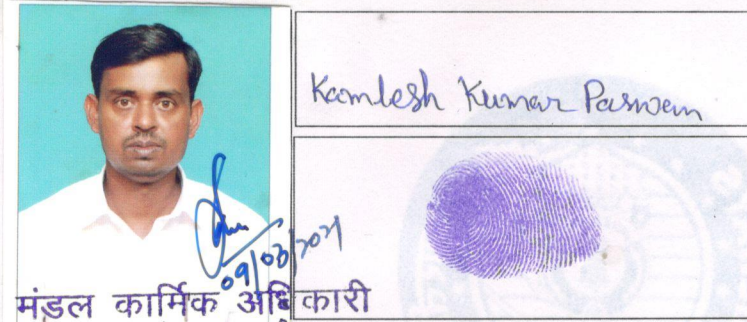 Kamlesh Kumar Paswan
09/03/2021
मंडल कार्मिक अधिकारी